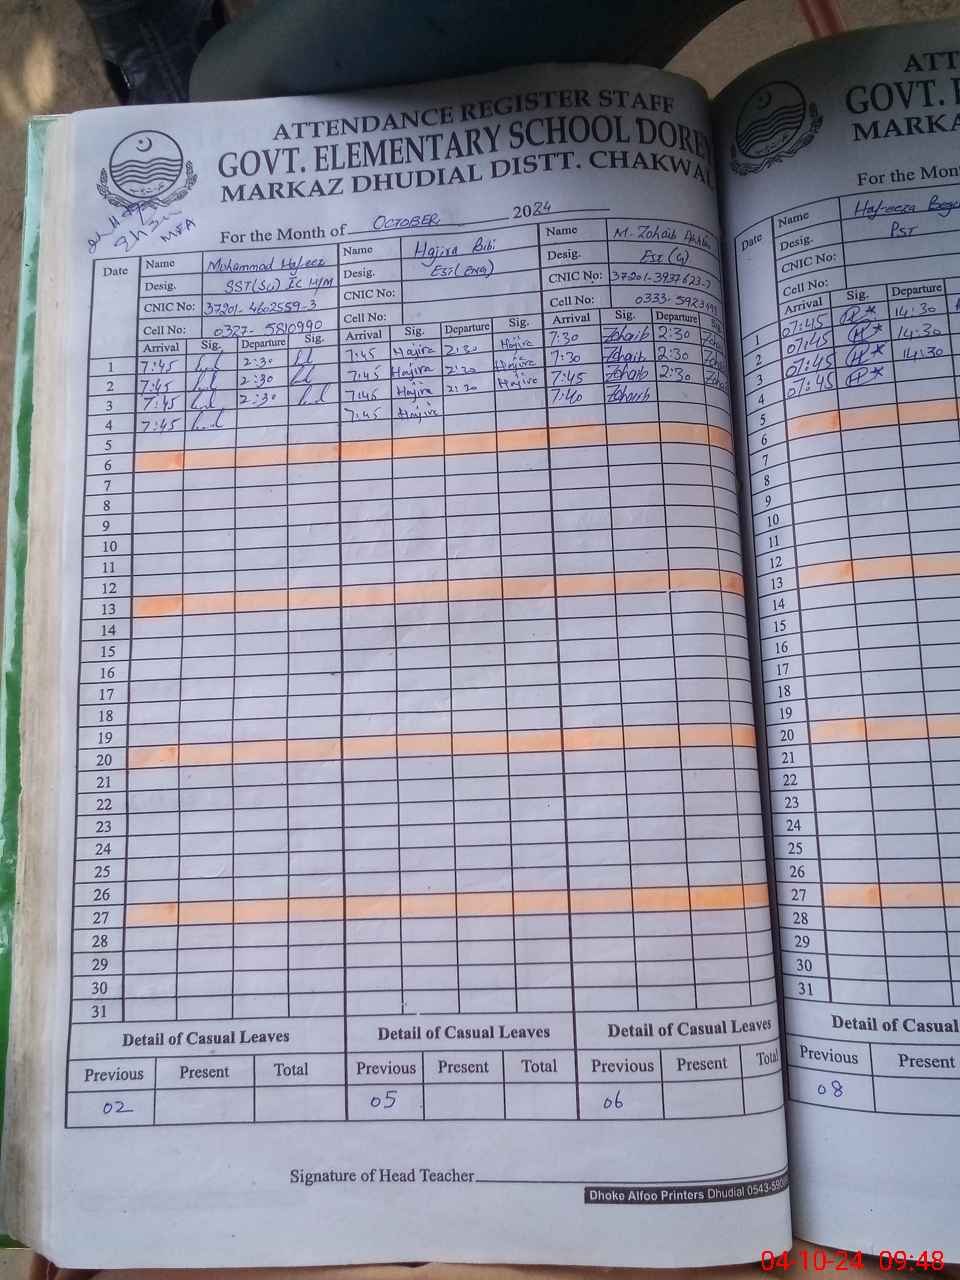 ATTENDANCE REGISTER STAFF
GOVT. ELEMENTARY SCHOOL DORE
MARKAZ DHUDIAL DISTT. CHAKWAL
For the Month of OCTOBER 2024
MEA
Date
Name Muhammad Hafeez
Desig. SST(Sci) Ic H/M
CNIC No: 37201-4602559-3
Cell No: 0327-5810990
Name Hajira Bibi
Desig. ESE(Eng)
CNIC No:
Cell No:
Name M. Zohaib
Desig. ESE (G)
CNIC No: 37201-3937623-7
Cell No: 0333-592
Arrival Sig. Departure Sig. Arrival Sig. Departure Sig. Arrival Sig. Departure Sig
1 7:45 2:30 7:45 Hajira 2:30 Hajira 7:30 Zohaib 2:30
2 7:45 2:30 7:45 Hajira 2:30 Hajira 7:30 Zohaib 2:30
3 7:45 2:30 7:45 Hajira 2:30 Hajira 7:45 Zohaib 2:30
4 7:45 7:45 Hajira 7:40 Zohaib
5
6
7
8
9
10
11
12
13
14
15
16
17
18
19
20
21
22
23
24
25
26
27
28
29
30
31
Detail of Casual Leaves Detail of Casual Leaves Detail of Casual Leaves
Previous Present Total Previous Present Total Previous Present Total
02 05 06
Signature of Head Teacher
Dhoke Alfoo Printers Dhudial 0543-590
ATT
GOVT. E
MARKA
For the Mon
Date
Name Hafeeza Beg
Desig. PST
CNIC No:
Cell No:
Arrival Sig. Departure
1 07:45 14:30
2 07:45 14:30
3 07:45 14:30
07:45
5
6
7
8
9
10
11
12
13
14
15
16
17
18
19
20
21
22
23
24
25
26
27
28
29
30
31
Detail of Casual
Previous Present
08
04-10-24 09:48